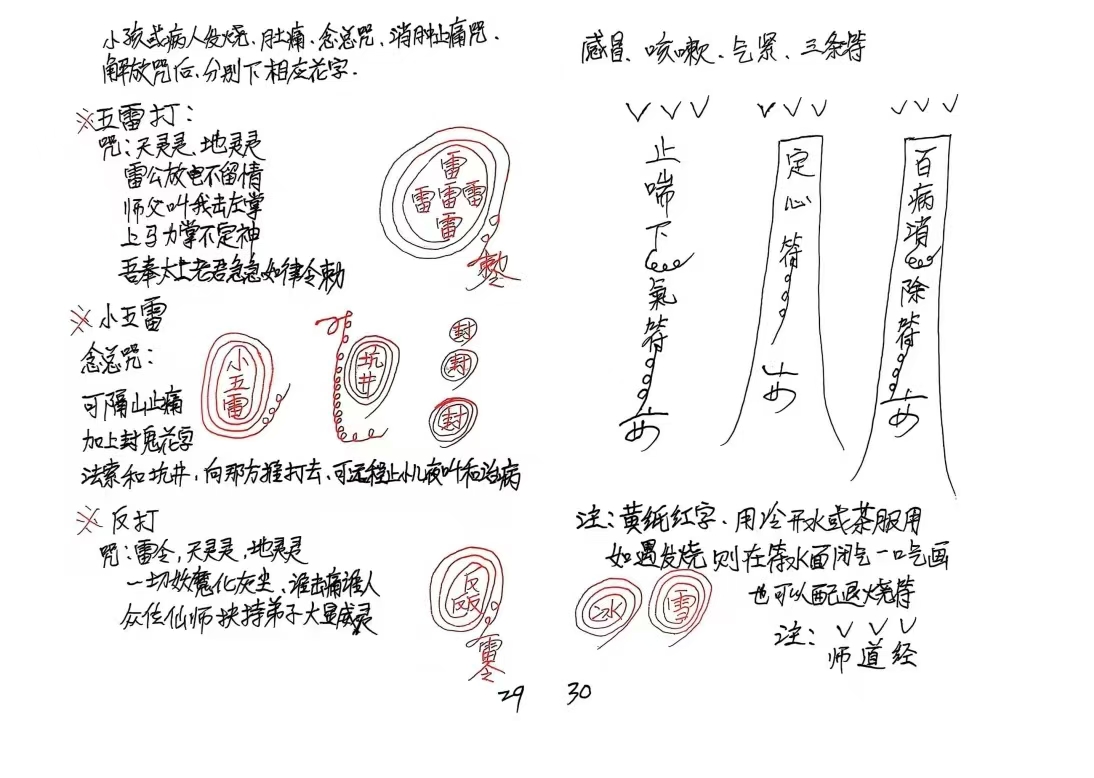 小孩或病人发烧、肚痛、念总咒、消肿止痛咒、
解放咒后、分别下相应花字.
※五雷打:
咒:天灵灵、地灵灵
雷公放电不留情
师父叫我击左掌
上马力掌不定神
吾奉太上老君急急如律令勅
雷
雷雷雷
雷
勅令
※小五雷
念总咒:
可隔山止痛
加上封鬼花字
小五雷
坑井
封
封
封
法索和坑井,向那方推打去,可远程止小儿夜叫和治病
※反打
咒:雷令,天灵灵、地灵灵
一切妖魔化灰尘、谁击痛谁人
众位仙师扶持弟子大显威灵
反
反反
雷令
29
感冒、咳嗽、气紧、三条符
止喘下氣符
定心符
百病消除符
注:黄纸红字、用冷开水或茶服用
如遇发烧则在符水面闭气一口气画
冰
雪
也可以配退烧符
注:
师道经
30